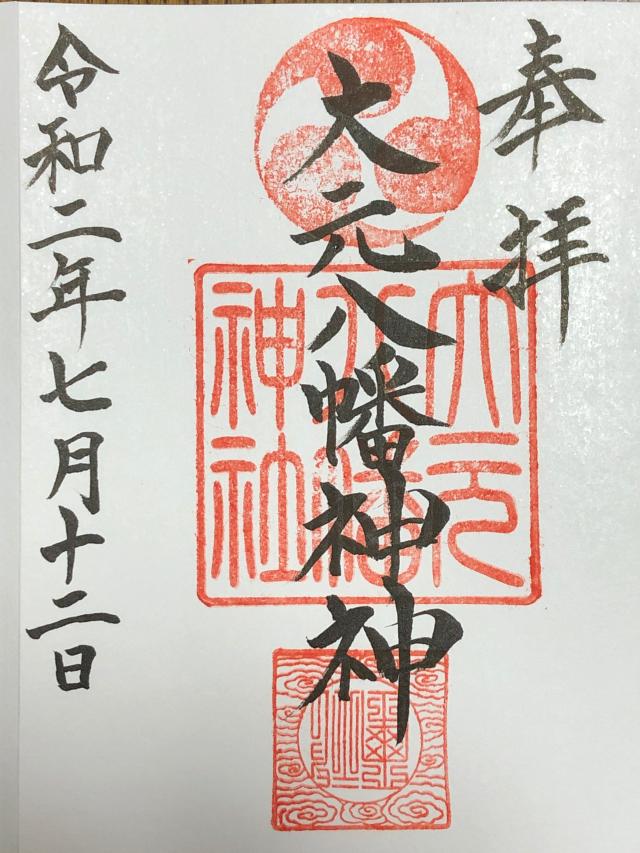 奉拝
大元八幡神神
大元
八幡
神社
令和二年七月十二日